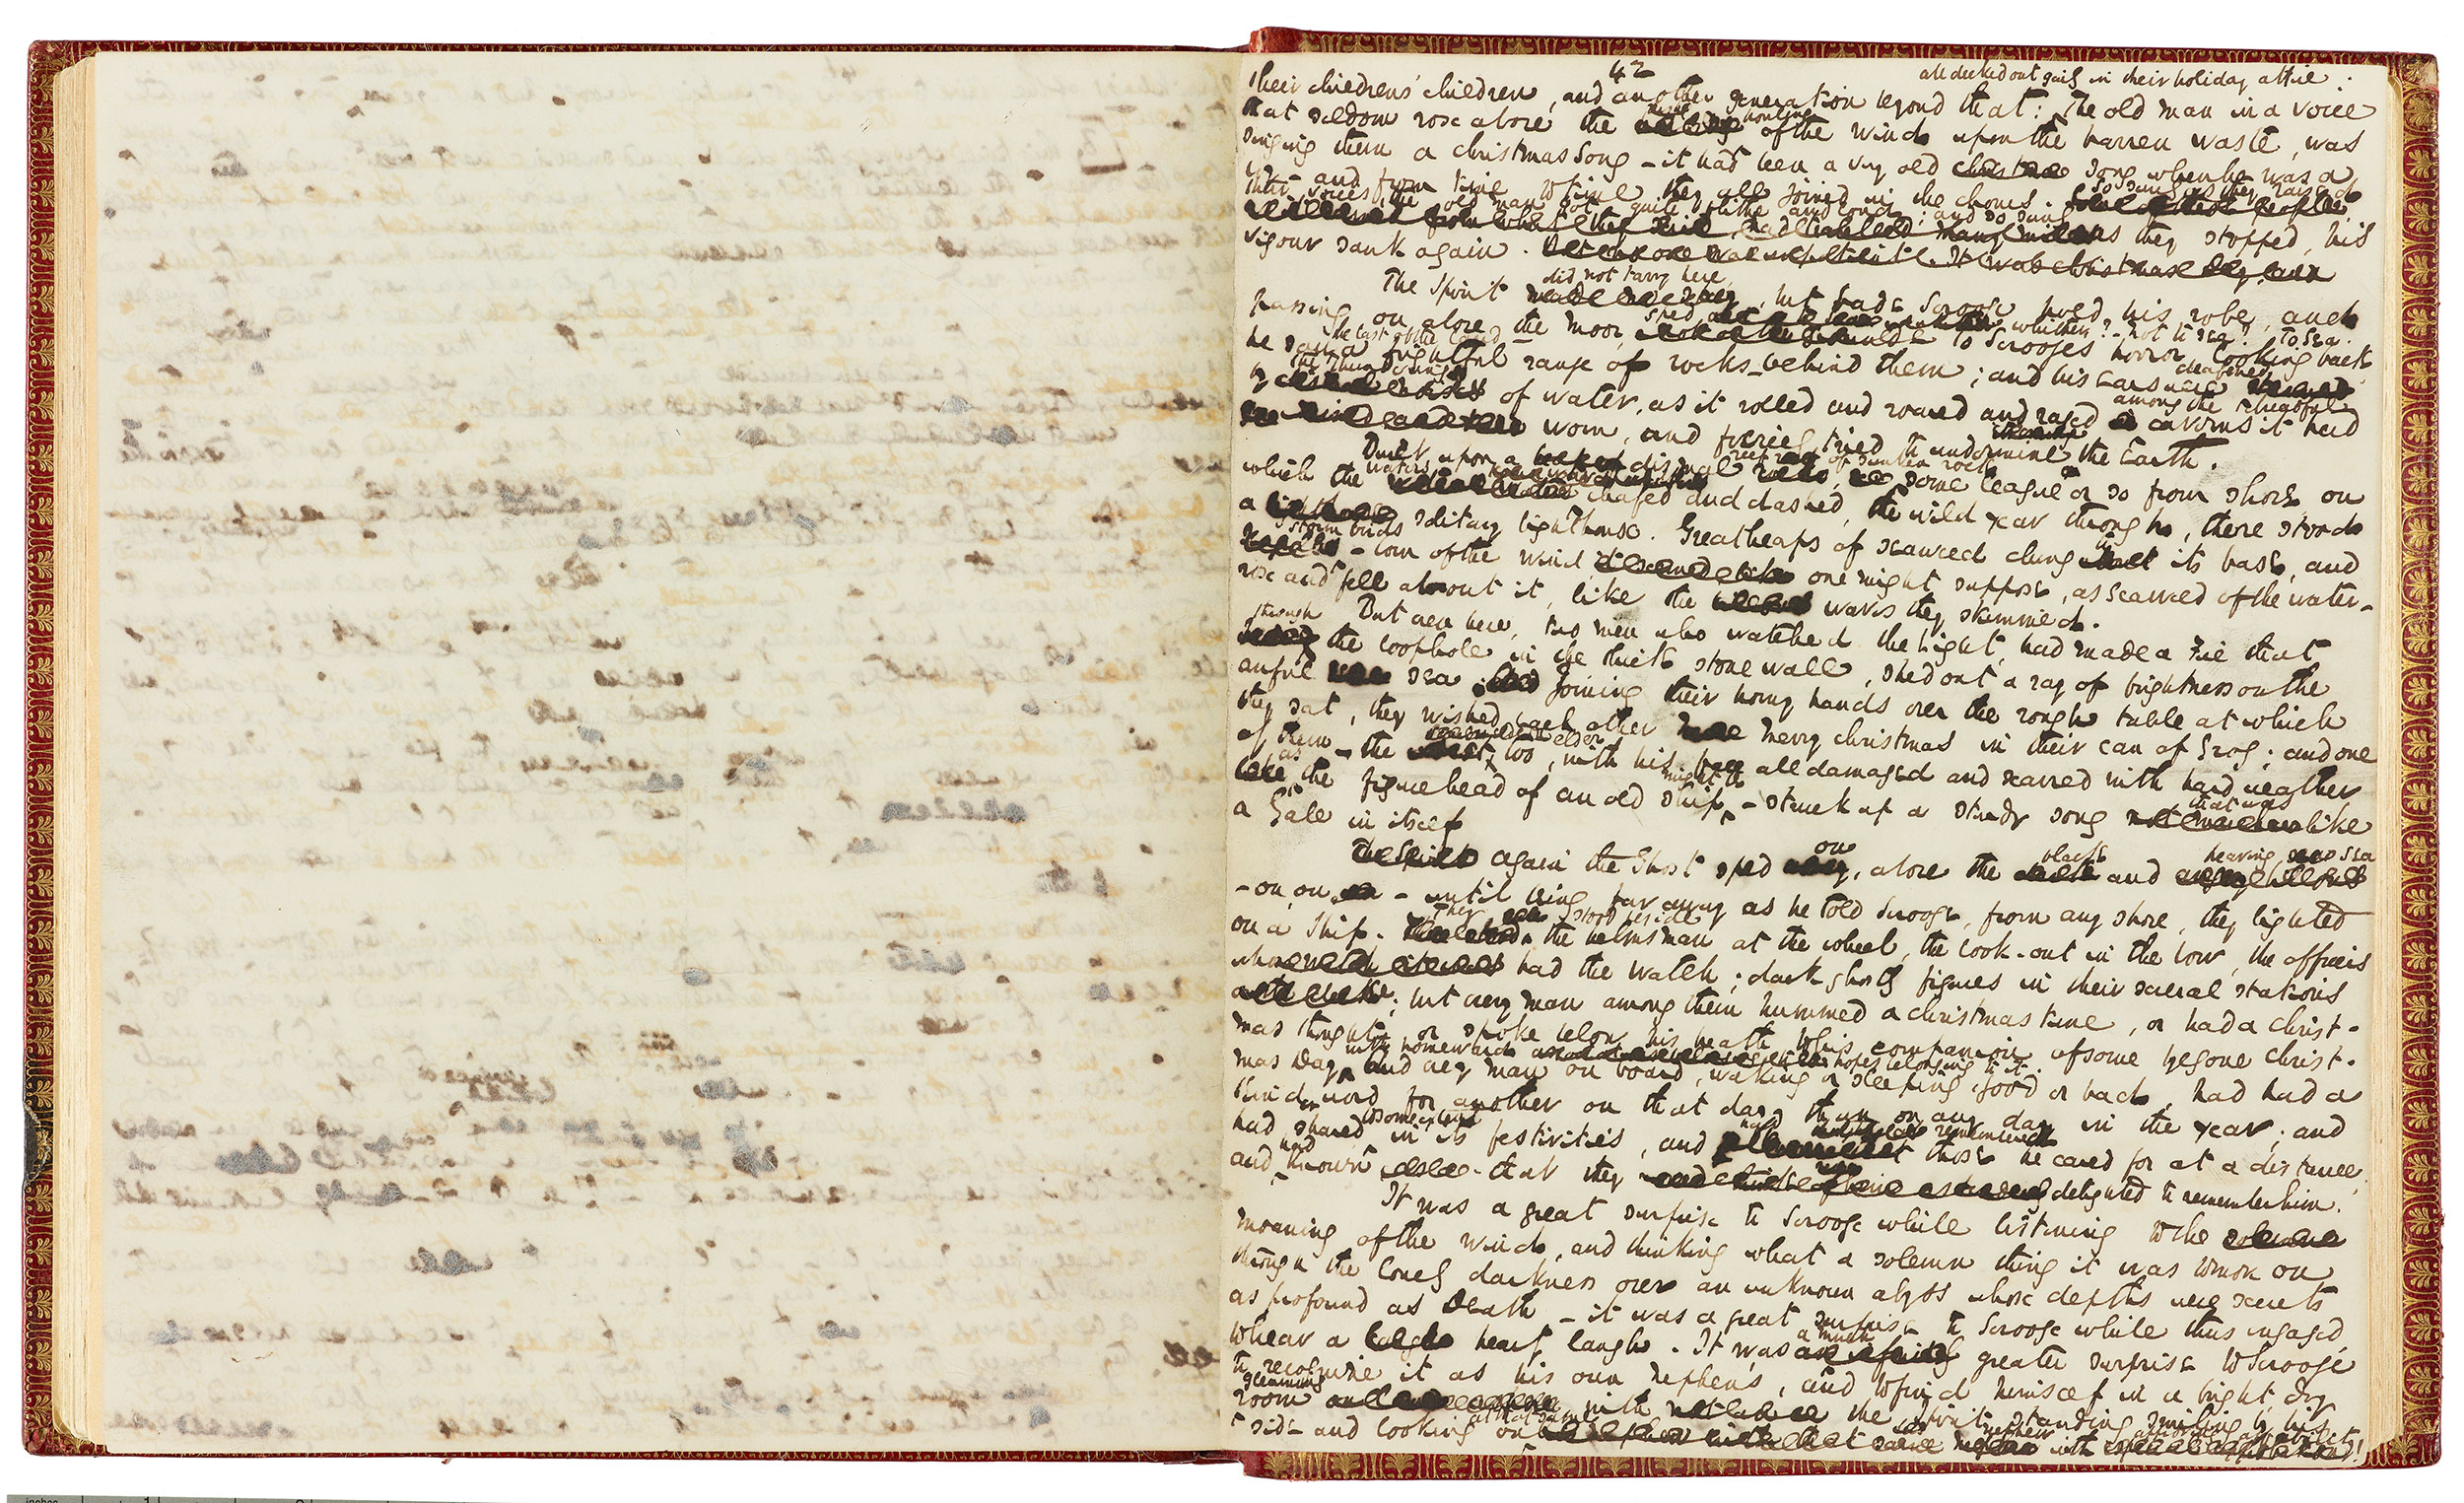 42
all decked out gaily in their holiday attire.
their children's children, and another generation beyond that: The old man in a voice
that seldom rose above the howling of the wind upon the barren waste, was
singing them a Christmas Song - it had been a very old song when he was a
boy - and from time to time they all joined in the chorus. So surely as they raised
their voices, the old man got quite blithe and loud; and so surely
as they stopped, his
vigour sank again.
The Spirit did not tarry here, but bade Scrooge hold his robe, and
passing on above the moor, sped whither? not to sea? To sea.
To Scrooge's horror, looking back
he saw the last of the land a frightful range of rocks behind them; and his ears were deafened
by the thundering of water, as it rolled and roared and raged among the dreadful caverns it had
worn, and fiercely tried to undermine the Earth.
Built upon a dismal reef of sunken rocks, some league or so from shore on
which the waters chafed and dashed, the wild year through, there stood
a solitary lighthouse. Great heaps of seaweed clung to its base, and
storm birds - born of the wind one might suppose, as seaweed of the water -
rose and fell about it, like the waves they skimmed.
But even here, two men who watched the light, had made a fire that
through the loophole in the thick stone wall, shed out a ray of brightness on the
awful sea. Joining their horny hands over the rough table at which
they sat, they wished each other Merry Christmas in their can of Grog; and one
of them - the elder too, with his face all damaged and scarred with hard weather
as the figure head of an old ship might be - struck up a sturdy song that was like
a Gale in itself
again the Ghost sped on, above the black and heaving sea
- on, on - until being far away as he told Scrooge, from any shore, they lighted
on a Ship. They stood beside the helmsman at the wheel, the look-out in the bow, the officers
who had the watch; dark ghostly figures in their several stations
; but every man among them hummed a Christmas tune, or had a Christ-
mas thought, or spoke below his breath to his companion of some bygone Christ-
mas Day, with homeward hopes belonging to it. And every man on board, waking or sleeping, good or bad, had had a
kinder word for another on that day than on any day in the year; and
had shared to some extent in its festivities, and had remembered those he cared for at a distance,
and had known that they delighted to remember him.
It was a great surprise to Scrooge while listening to the
moaning of the wind, and thinking what a solemn thing it was to move on
through the lonely darkness over an unknown abyss whose depths were secrets
as profound as Death - it was a great surprise to Scrooge while thus engaged,
to hear a hearty laugh. It was a much greater surprise to Scrooge
to recognize it as his own nephew's, and to find himself in a bright, dry
gleaming room with the Spirit standing smiling by his
side and looking at that same nephew with approving affability!
inches
1